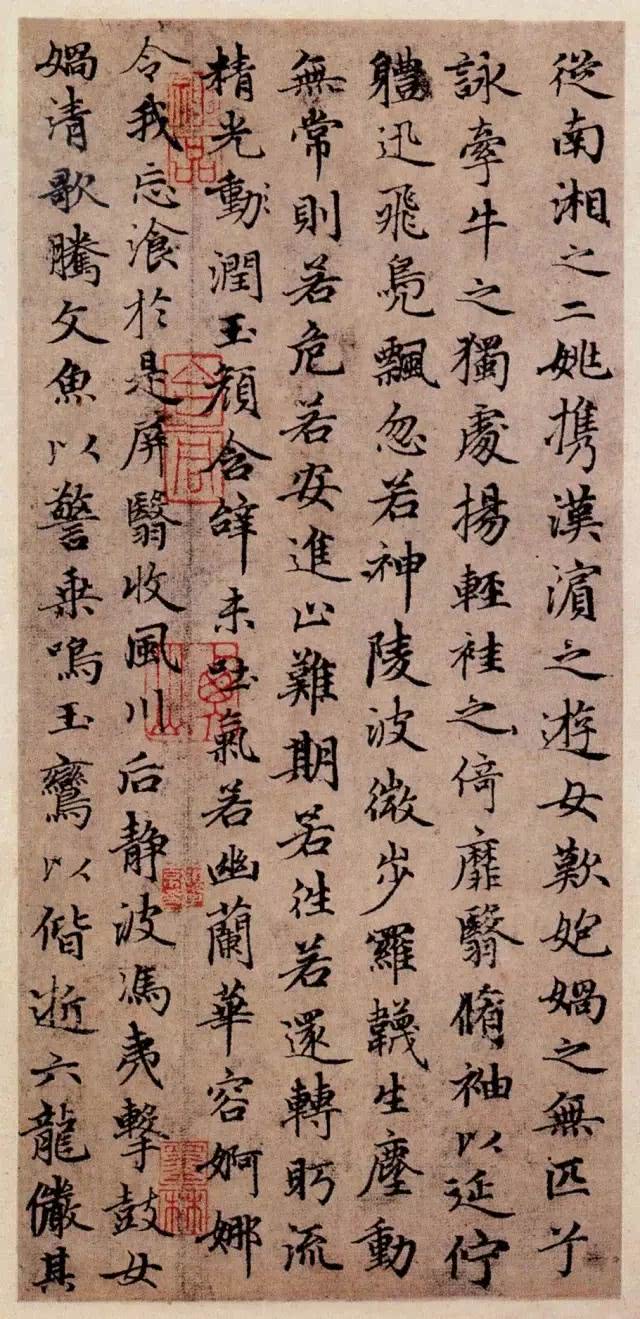 從南湘之二姚携漢濱之遊女歎媧之無匹兮
詠牽牛之獨處揚輕袿之倚靡翳脩袖以延佇
軆迅飛鳧飄忽若神陵波微步羅韈生塵動
無常則若危若安進止難期若往若還轉眄流
精光動潤玉顏含辞未吐氣若幽蘭華容婀娜
令我忘飡於是屏翳收風川后静波馮夷擊鼓女
媧清歌騰文魚以警乗鳴玉鸞以偕逝六龍儼其
神品
墨林